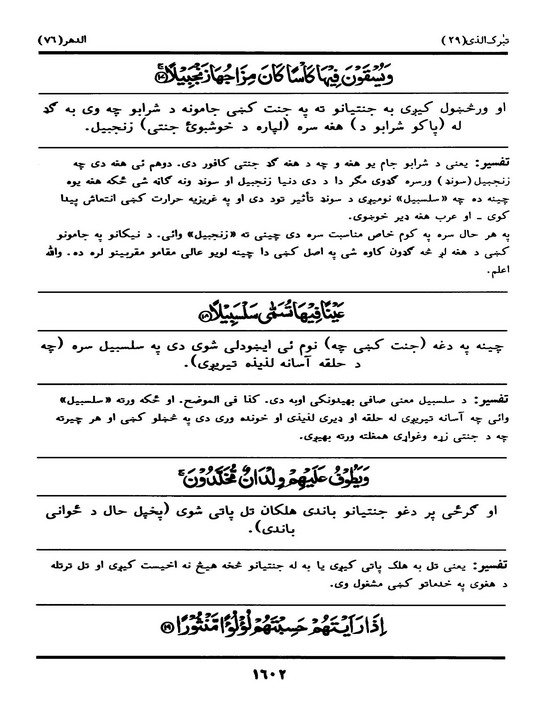 تبٰرک الذی(۲۹) الدهر(۷۶)
وَيُسْقَوْنَ فِيْهَا كَاْسًا كَانَ مِزَاجُهَا زَنْجَبِيْلًا ۝۱۷ۚ
او ورڅښول کیږی به جنتیانو ته په جنت کښی جامونه د شرابو چه وی به ګډ
له (پاکو شرابو د) هغه سره (لپاره د خوشبوئ جنتی) زنجبیل.
تفسیر: یعنی د شرابو جام یو هغه و چه د هغه ګډ جنتی کافور دی. دوهم ئی هغه دی چه
زنجبیل(سونډ) ورسره ګډوی مګر دا د دی دنیا زنجبیل او سونډ ونه ګاڼه شی ځکه هغه یوه
چینه ده چه «سلسبیل» نومیږی د سونډ تأثیر تود دی او په غریزیه حرارت کښی انتعاش پیدا
کوی ـ او عرب هغه ډیر خوښوی.
په هر حال سره په کوم خاص مناسبت سره دی چینی ته «زنجبیل» وائی. د نیکانو په جامونو
کښی د هغه لږ څه ګډون کاوه شی په اصل کښی دا چینه لویو عالی مقامو مقربینو لره ده. والله
اعلم.
عَيْنًا فِيْهَا تُسَمّٰى سَلْسَبِيْلًا ۝۱۸
چینه په دغه (جنت کښی چه) نوم ئی ایښودلی شوی دی په سلسبیل سره (چه
د حلقه آسانه لذیذه تیریږی).
تفسیر: د سلسبیل معنی صافی بهیدونکی اوبه دی. کذا فی الموضح. او ځکه ورته «سلسبیل»
وائی چه آسانه تیریږی له حلقه او ډیری لذیذی او خوندوره وری دی په څښلو کښی او هر چیرته
چه د جنتی زړه وغواړی همغلته ورته بهیږی.
وَيَطُوْفُ عَلَيْهِمْ وِلْدَانٌ مُّخَلَّدُوْنَ ۚ
او ګرځی پر دغو جنتیانو باندی هلکان تل پاتی شوی (پخپل حال د ځوانی
باندی).
تفسیر: یعنی تل به هلک پاتی کیږی یا به له جنتیانو څخه هیڅ نه اخیست کیږی او تل ترتله
د هغوی په خدماتو کښی مشغول وی.
اِذَا رَاَيْتَهُمْ حَسِبْتَهُمْ لُؤْلُؤًا مَّنْثُوْرًا ۝۱۹
۱۶۰۲